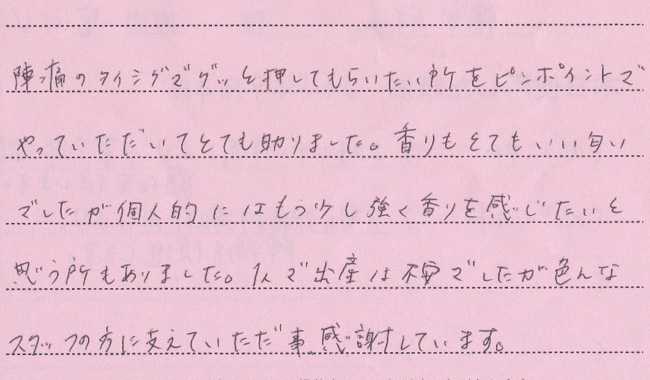 陣痛のタイミングでグッと押してもらいたい所をピンポイントで
やっていただいてとても助りました。香りもとてもいい匂い
でしたが個人的にはもう少し強く香りを感じたいと
思う所もありました。1人で出産は不安でしたが色んな
スタッフの方に支えていただた事、感謝しています。